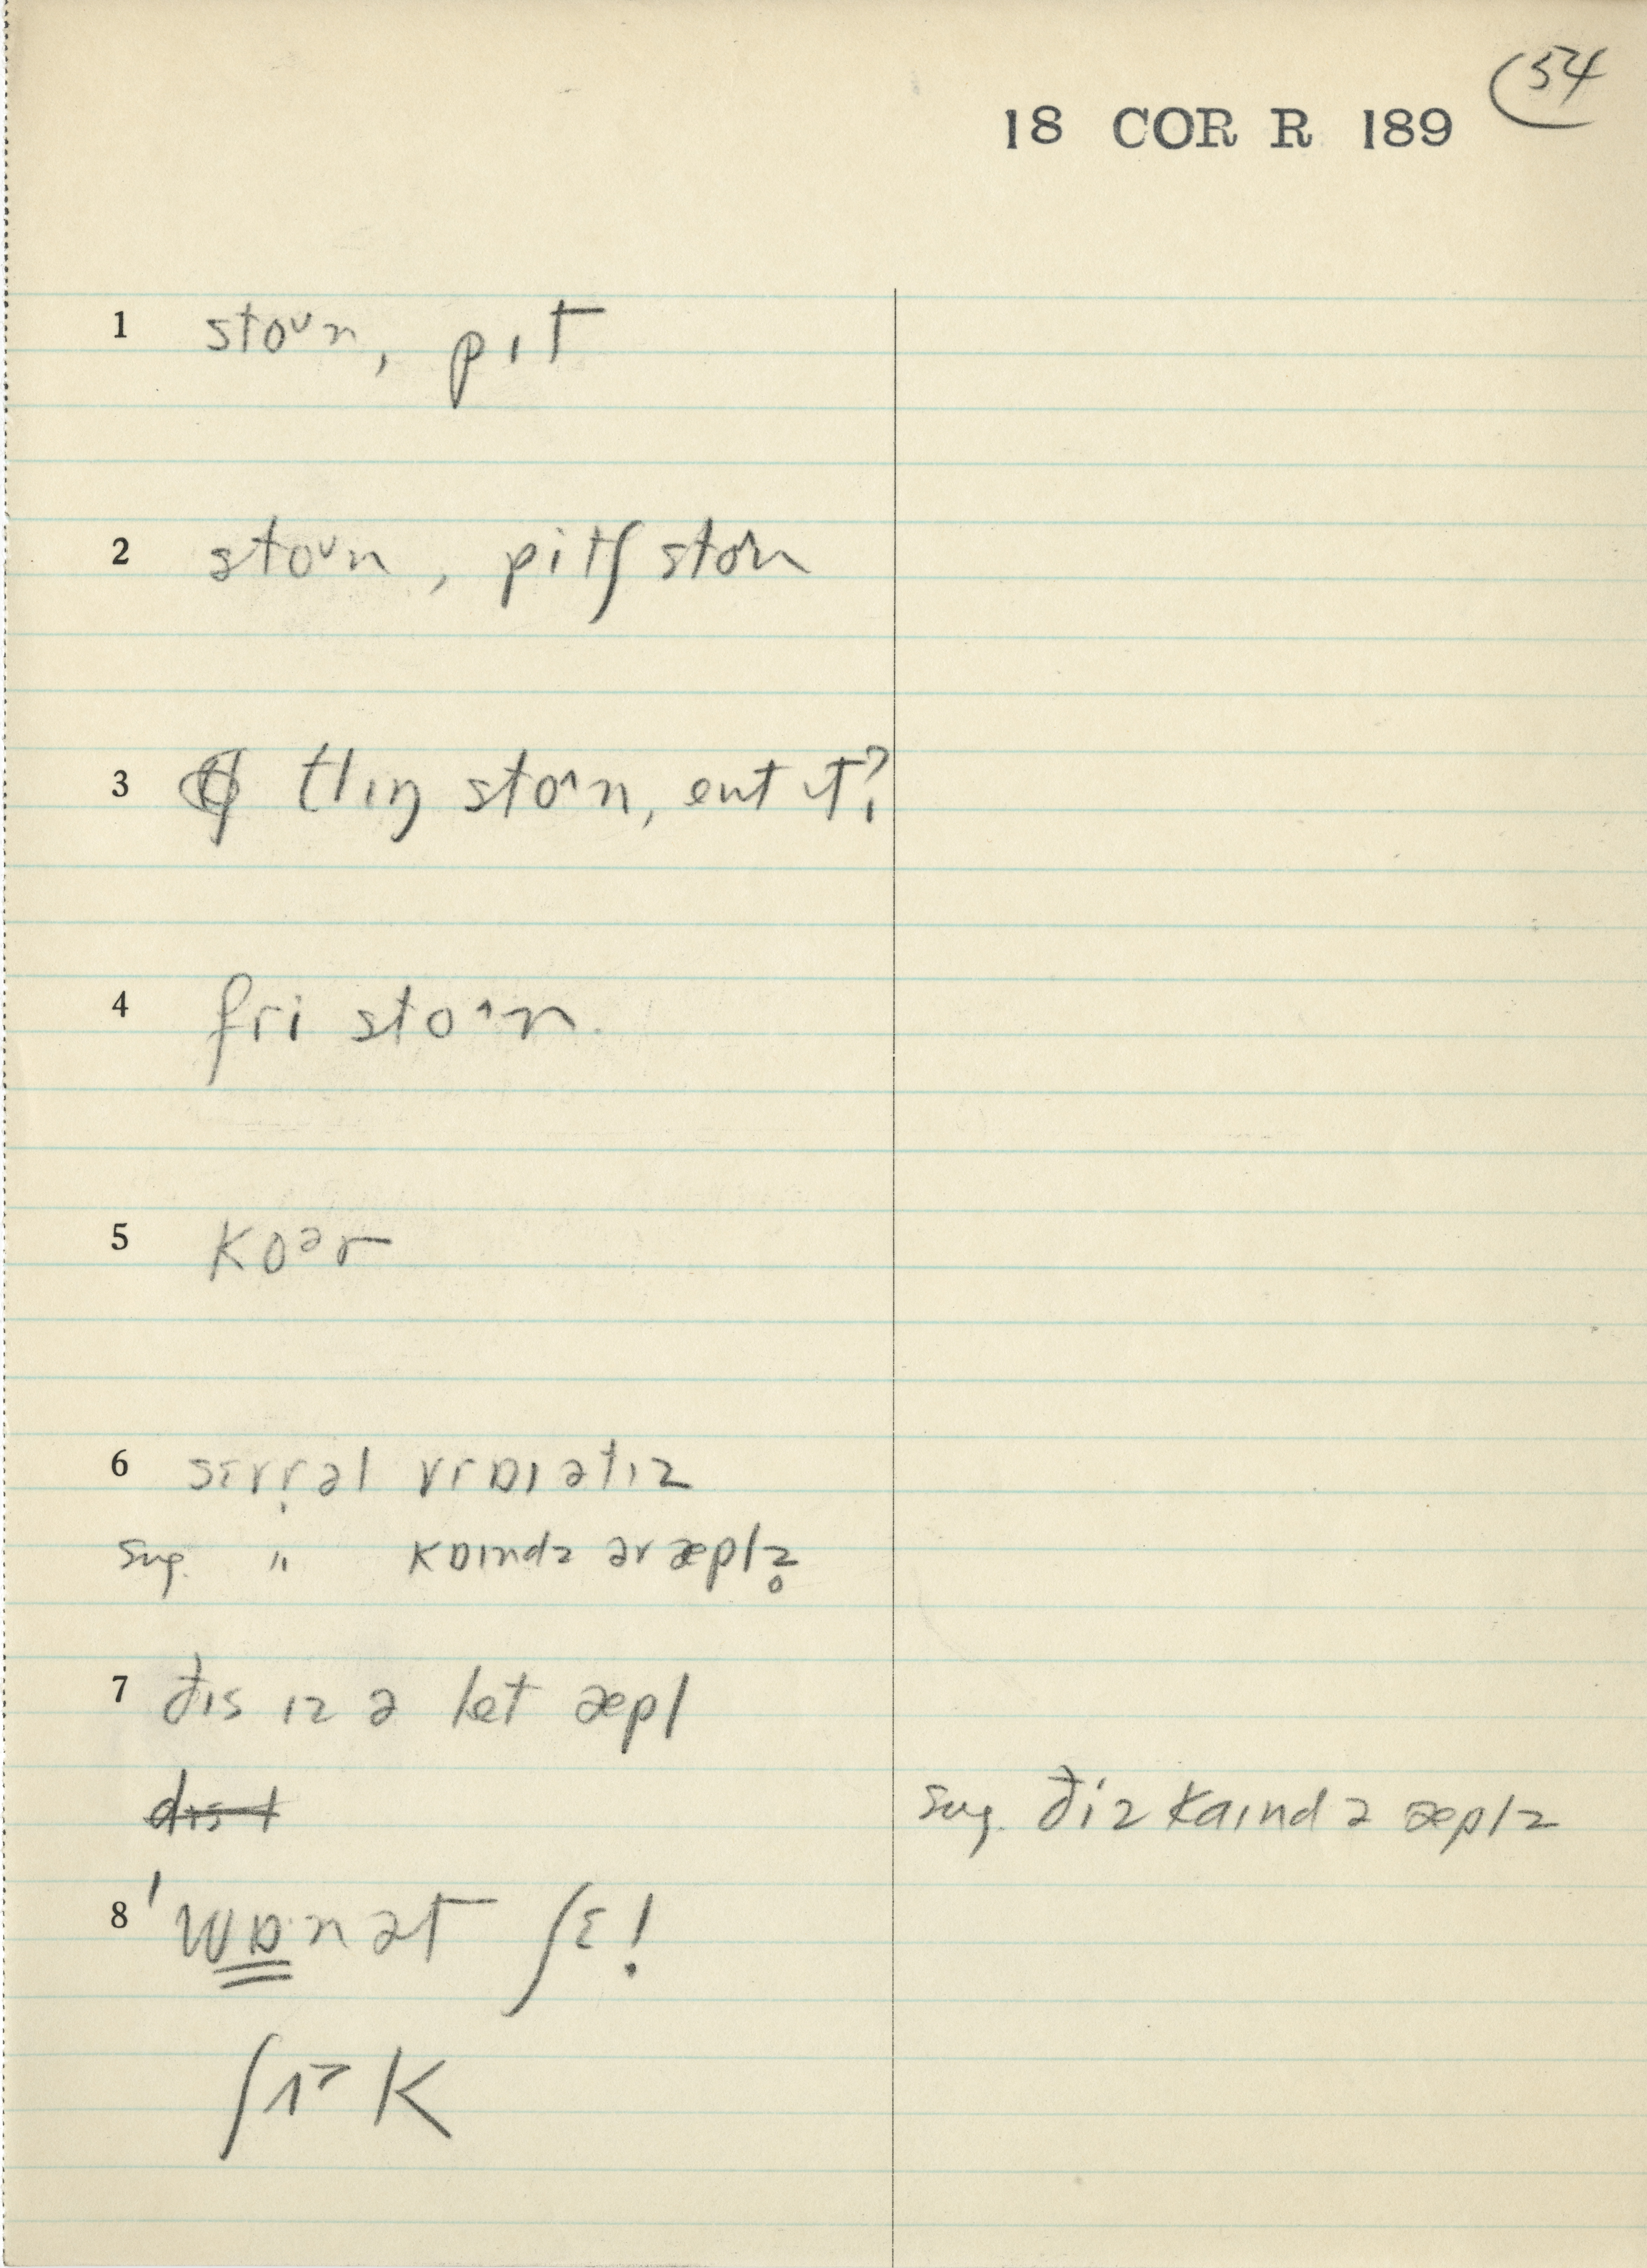 54
18 COR R 189
1 stoᵛn, pɪt
2 stoᵛn, pitʃ ston
3 tlɪŋ stoˆn, ent ɪt?
4 fri stoˆn
5 kɒᵊr
6 sɛvr̩əl vrɒɪətɪz
sug. " kɒɪndz əv æplz̥
7 đɪs ɪz ə let æpl
dɪs t
sug. điz kaɪnd ə æplz
8 'wɒnət ʃɛ!
ʃɪ˃k